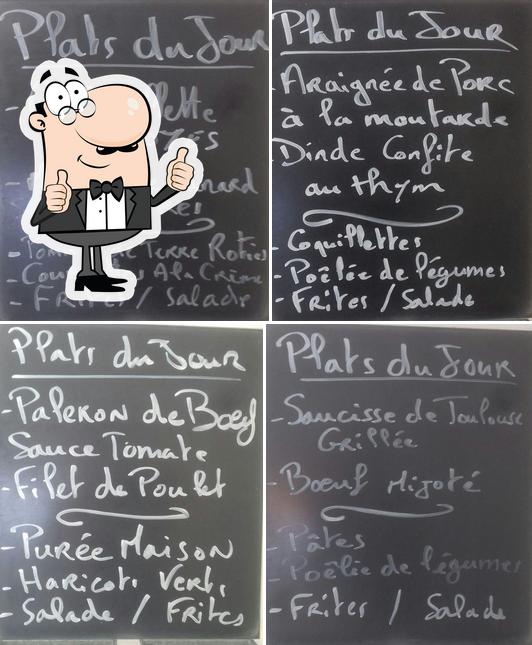 Plats du Jour
Terre Roties
A la Crème
- Frites / Salade
Plats du Jour
- Araignée de Porc
à la moutarde
- Dinde Confite
au thym
- Coquillettes
- Poêlée de légumes
- Frites / Salade
Plats du Jour
- Paleron de Bœuf
Sauce Tomate
- Filet de Poulet
- Purée Maison
- Haricots Verts
- Salade / Frites
Plats du Jour
- Saucisse de Toulouse
Grillée
- Bœuf Mijoté
- Pâtes
- Poêlée de légumes
- Frites / Salade